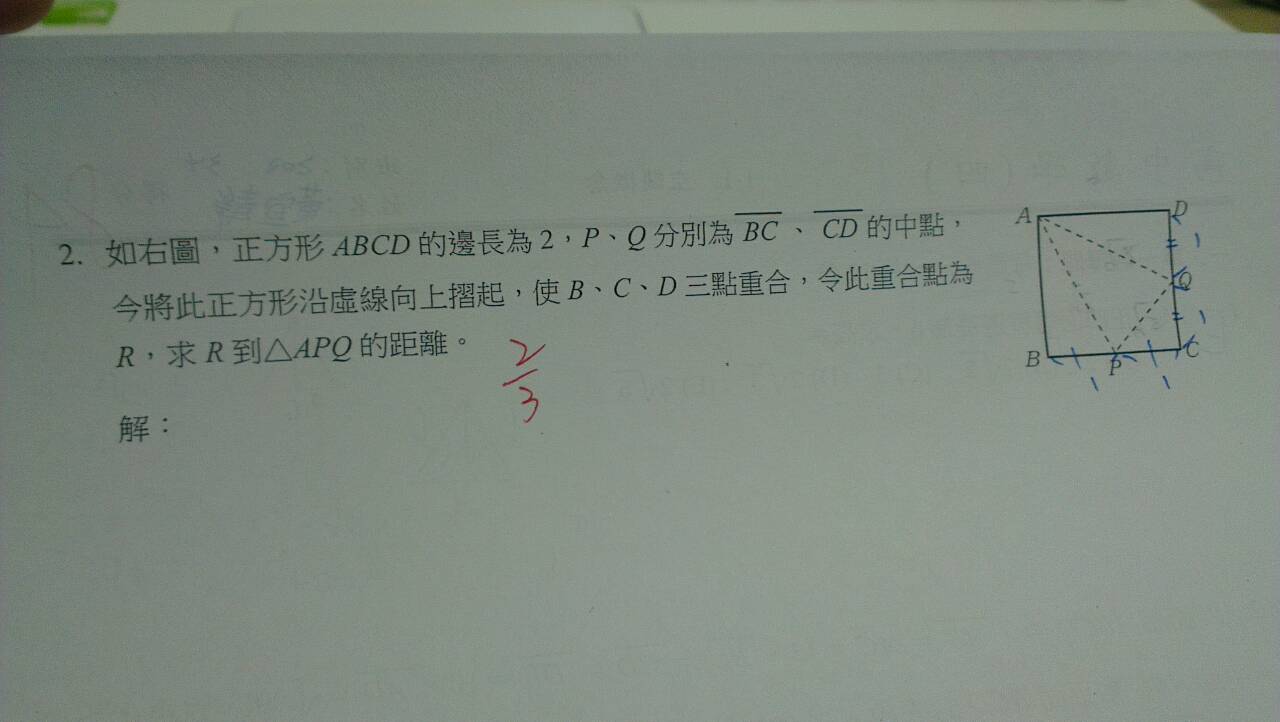 2. 如右圖，正方形 ABCD 的邊長為 2，P、Q 分別為 BC、CD 的中點，
今將此正方形沿虛線向上摺起，使 B、C、D 三點重合，令此重合點為
R，求 R 到△APQ 的距離。
2/3
解：
A
D
1
Q
1
B
P
C
1
1